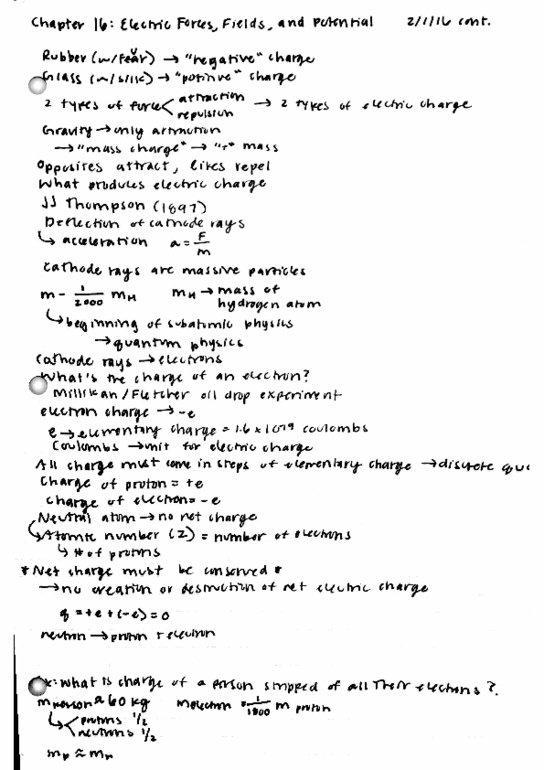 Chapter 16: Electric Forces, Fields, and Potential 2/1/16 cont.
Rubber (w/fear) → "negative" charge
Glass (w/silk) → "positive" charge
2 types of force < attraction repulsion → 2 types of electric charge
Gravity → only attraction
→ "mass charge" → "+" mass
Opposites attract, likes repel
What produces electric charge
JJ Thompson (1897)
Deflection of cathode rays
↳ acceleration a = F/m
Cathode rays are massive particles
m - 1/2000 mH mH → mass of hydrogen atom
↳ beginning of subatomic physics
→ quantum physics
Cathode rays → electrons
What's the charge of an electron?
Millikan/Fletcher oil drop experiment
electron charge → -e
e → elementary charge = 1.6 x 10^19 coulombs
Coulombs → unit for electric charge
All charge must come in steps of elementary charge → discrete
Charge of proton = +e
charge of electron = -e
Neutral atom → no net charge
↳ Atomic number (Z) = number of electrons
↳ # of protons
* Net charge must be conserved *
→ no creation or destruction of net electric charge
q = +e + (-e) = 0
neutron → proton + electron
Ex: What is charge of a person stripped of all their electrons?
mperson ≈ 60 kg melectron = 1/1800 m proton
↳ < protons 1/2
neutrons 1/2
mp ≈ mn